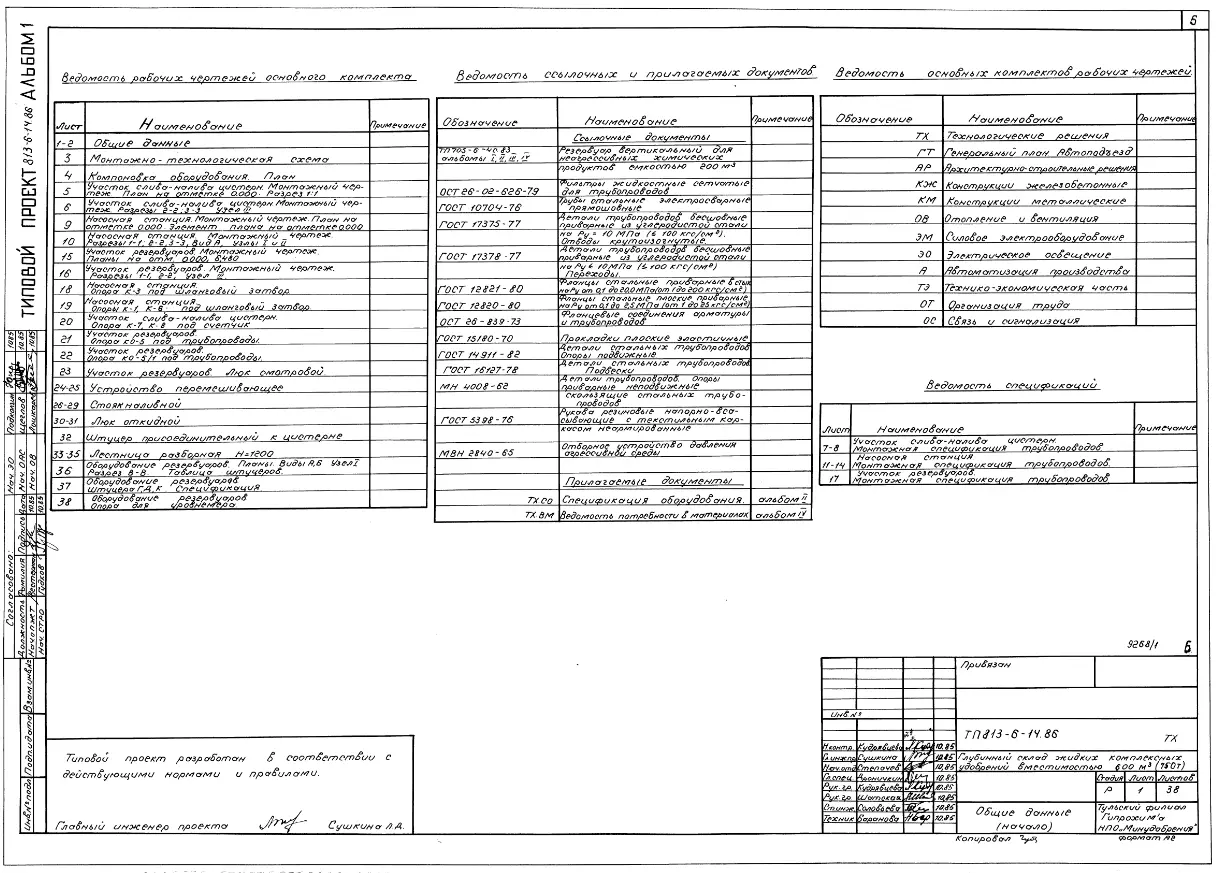 5
ТИПОВОЙ ПРОЕКТ 813-6-14.86 АЛЬБОМ 1
Ведомость рабочих чертежей основного комплекта
Лист Наименование Примечание
1-2 Общие данные
3 Монтажно-технологическая схема
4 Компоновка оборудования. План
5 Участок слива-налива цистерн. Монтажный чер-
теж. План на отметке 0.000. Разрез 1-1
6 Участок слива-налива цистерн. Монтажный чер-
теж. Разрезы 2-2, 3-3 Узел III
9 Насосная станция. Монтажный чертеж. План на
отметке 0.000. Элемент плана на отметке 0.000
10 Насосная станция. Монтажный чертеж.
Разрезы 1-1, 2-2, 3-3, Вид А, Узлы I и II
15 Участок резервуаров. Монтажный чертеж.
Планы на отм. 0.000, 6,480
16 Участок резервуаров. Монтажный чертеж.
Разрезы 1-1, 2-2, Узел III
18 Насосная станция
Опора К-3 под шланговый затвор
19 Насосная станция
Опоры К-1, К-6 под шланговый затвор
20 Участок слива-налива цистерн.
Опора К-7, К-8 под счетчик
21 Участок резервуаров.
Опора КО-5 под трубопроводы.
22 Участок резервуаров.
Опора КО-5/1 под трубопроводы.
23 Участок резервуаров. Люк смотровой.
24-25 Устройство перемешивающее
26-29 Стояк наливной
30-31 Люк откидной
32 Штуцер присоединительный к цистерне
33-35 Лестница разборная Н=1200
36 Оборудование резервуаров. Планы. Виды А, Б Узел I
Разрез В-В. Таблица штуцеров.
37 Оборудование резервуаров
Штуцера Г, Д, К Спецификация
38 Оборудование резервуаров
Опора для уровнемера
Ведомость ссылочных и прилагаемых документов
Обозначение Наименование Примечание
Ссылочные документы
ТП705-6-40.83 Резервуар вертикальный для
альбомы I, II, III, IV неагрессивных химических
продуктов емкостью 200 м3
ОСТ 26-02-626-79 Фильтры жидкостные сетчатые
для трубопроводов
ГОСТ 10704-76 Трубы стальные электросварные
прямошовные
ГОСТ 17375-77 Детали трубопроводов бесшовные
приварные из углеродистой стали
на Ру = 10 МПа (≤ 100 кгс/см²).
Отводы крутоизогнутые.
ГОСТ 17378-77 Детали трубопроводов бесшовные
приварные из углеродистой стали
на Ру ≤ 10 МПа (≤ 100 кгс/см²)
Переходы.
ГОСТ 12821-80 Фланцы стальные приварные встык
на Ру от 0,1 до 20,0 МПа (от 1 до 200 кгс/см²)
ГОСТ 12820-80 Фланцы стальные плоские приварные
на Ру от 0,1 до 2,5 МПа (от 1 до 25 кгс/см²)
ОСТ 26-839-73 Фланцевые соединения арматуры
и трубопроводов
ГОСТ 15180-70 Прокладки плоские эластичные
ГОСТ 14911-82 Детали стальных трубопроводов
Опоры подвижные
ГОСТ 16127-78 Детали стальных трубопроводов
Подвески
МН 4008-62 Детали трубопроводов. Опоры
приварные неподвижные
скользящие стальных трубо-
проводов
ГОСТ 5398-76 Рукава резиновые напорно-вса-
сывающие с текстильным кар-
касом неармированные
МВН 2840-65 Отборное устройство давления
агрессивной среды
Прилагаемые документы
ТХ.СО Спецификация оборудования. альбом II
ТХ.ВМ Ведомость потребности в материалах альбом IV
Ведомость основных комплектов рабочих чертежей.
Обозначение Наименование Примечание
ТХ Технологические решения
ГТ Генеральный план Автоподъезд
АР Архитектурно-строительные решения
КЖ Конструкции железобетонные
КМ Конструкции металлические
ОВ Отопление и вентиляция
ЭМ Силовое электрооборудование
ЭО Электрическое освещение
А Автоматизация производства
ТЭ Технико-экономическая часть
ОТ Организация труда
ОС Связь и сигнализация
Ведомость спецификаций
Лист Наименование Примечание
7-8 Участок слива-налива цистерн.
Монтажная спецификация трубопроводов.
11-14 Насосная станция
Монтажная спецификация трубопроводов.
17 Участок резервуаров.
Монтажная спецификация трубопроводов.
Согласовано:
Должность Фамилия Подпись Дата
Нач. ОПС Щеглов 10.85
Нач. ЭО 10.85
Нач. ОВ 10.85
Нач. СТРО Годков 10.85
Инв.№ подл. Подп. и дата Взам.инв.№
Типовой проект разработан в соответствии с
действующими нормами и правилами.
Главный инженер проекта Сушкина Л.А.
9268/1 6
Привязан
ИНВ.№
ТП 813-6-14.86 ТХ
Н.контр. Кудрявцева 10.85
Гл.инж.пр. Сушкина 10.85
Нач.отд. Степачев 10.85
Гл.спец. 10.85
Рук.гр. Кудрявцева 10.85
Рук.гр. Шатская 10.85
Ст.инж. Соловьева 10.85
Техник Баранова 10.85
Глубинный склад жидких комплексных
удобрений вместимостью 600 м³ (780т)
Стадия Лист Листов
Р 1 38
Общие данные
(начало)
Тульский филиал
Гипрохим'а
НПО „Минудобрения"
Копировал формат А2